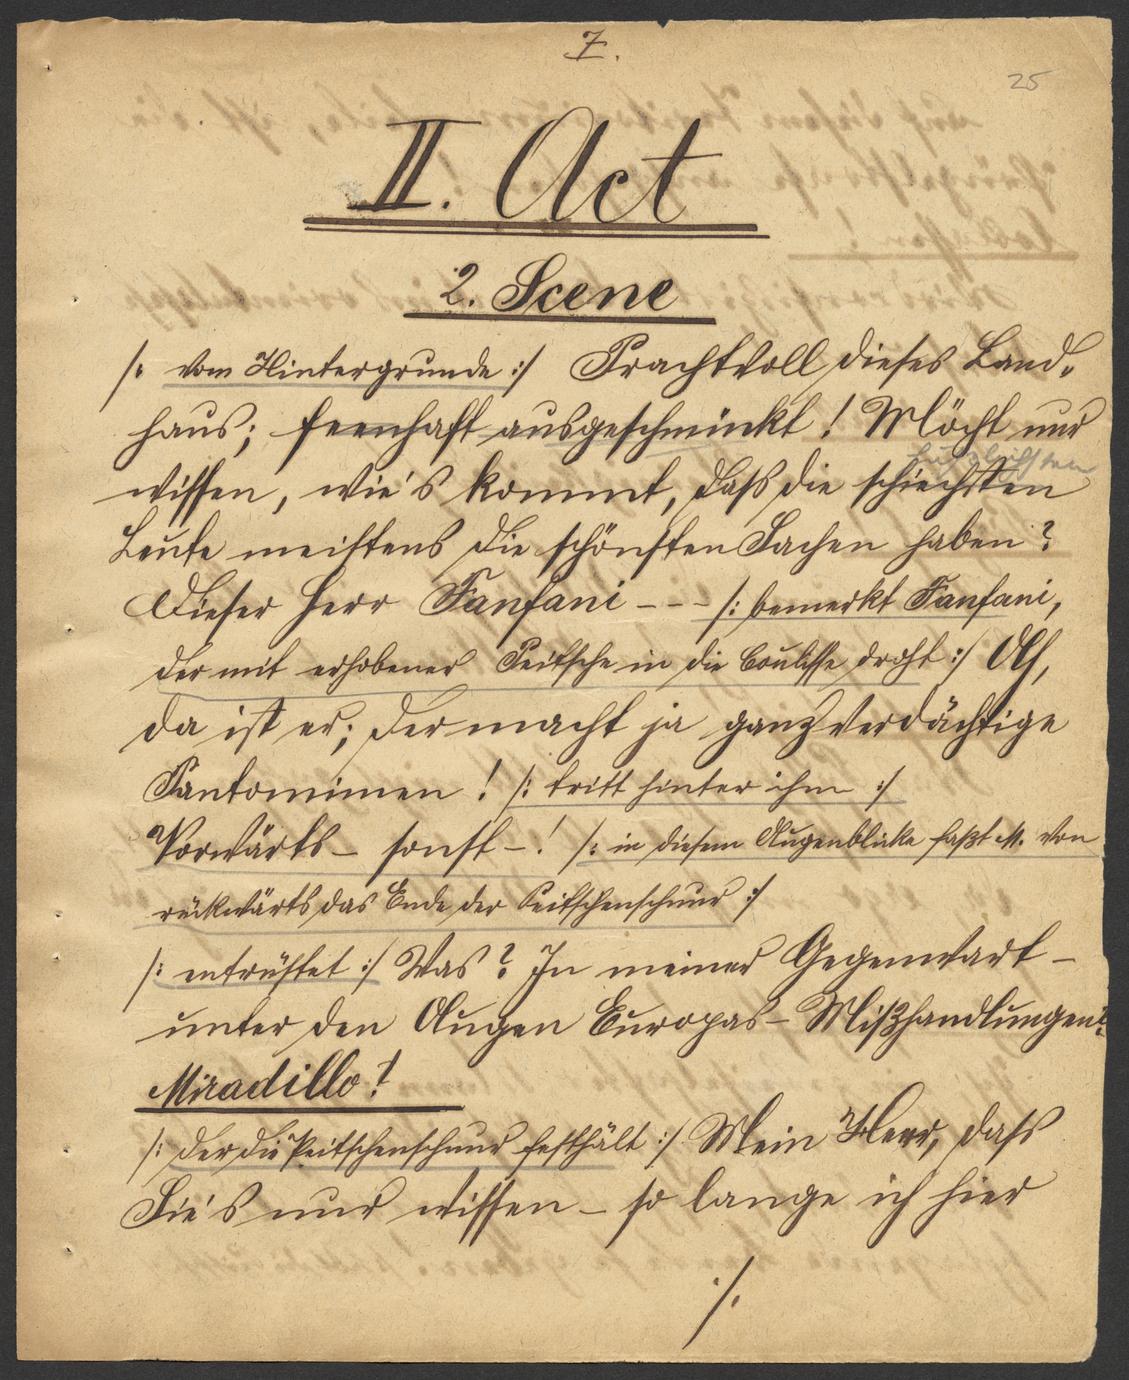 7.
25
II. Act
2. Scene
/: vom Hintergrunde :/ Prachtvoll dieses Land-
haus; feenhaft ausgeschmückt! Möcht nur
häßlichsten
wissen, wie's kommt, dass die schiechsten
Leute meistens die schönsten Sachen haben?
Dieser Herr Fanfani --- /: bemerkt Fanfani,
der mit erhobener Peitsche in die Coulisse droht :/ Ah,
da ist er; der macht ja ganz verdächtige
Pantomimen! /: tritt hinter ihm :/
Vorwärts – sonst –! /: in diesem Augenblicke faßt M. von
rückwärts das Ende der Peitschenschnur :/
/: entrüstet :/ Was? In meiner Gegenwart –
unter den Augen Europas – Mißhandlungen?
Miradillo!
/: der die Peitschenschnur festhält :/ Mein Herr, dass
Sie's nur wissen – so lange ich hier
./.